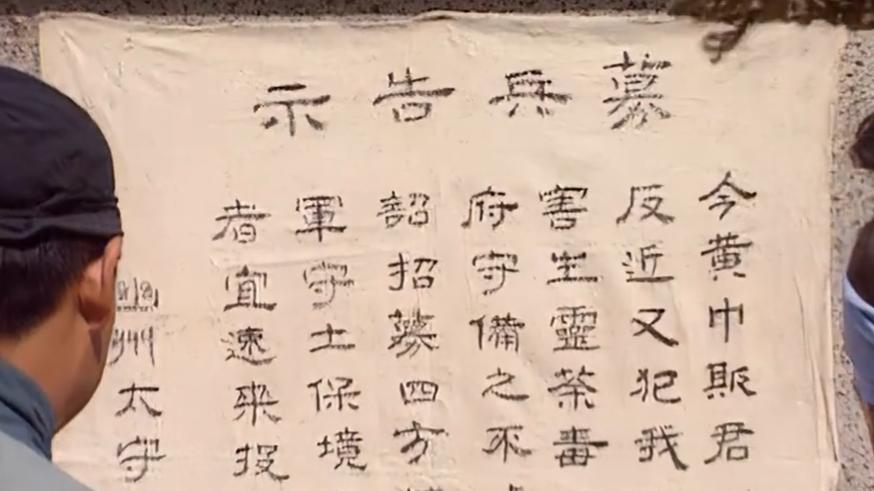 募兵告示
今黃巾叛君
反近又犯我
害生靈荼毒
府守備之不
詔招募四方
軍守土保境
者宜速來投
州太守